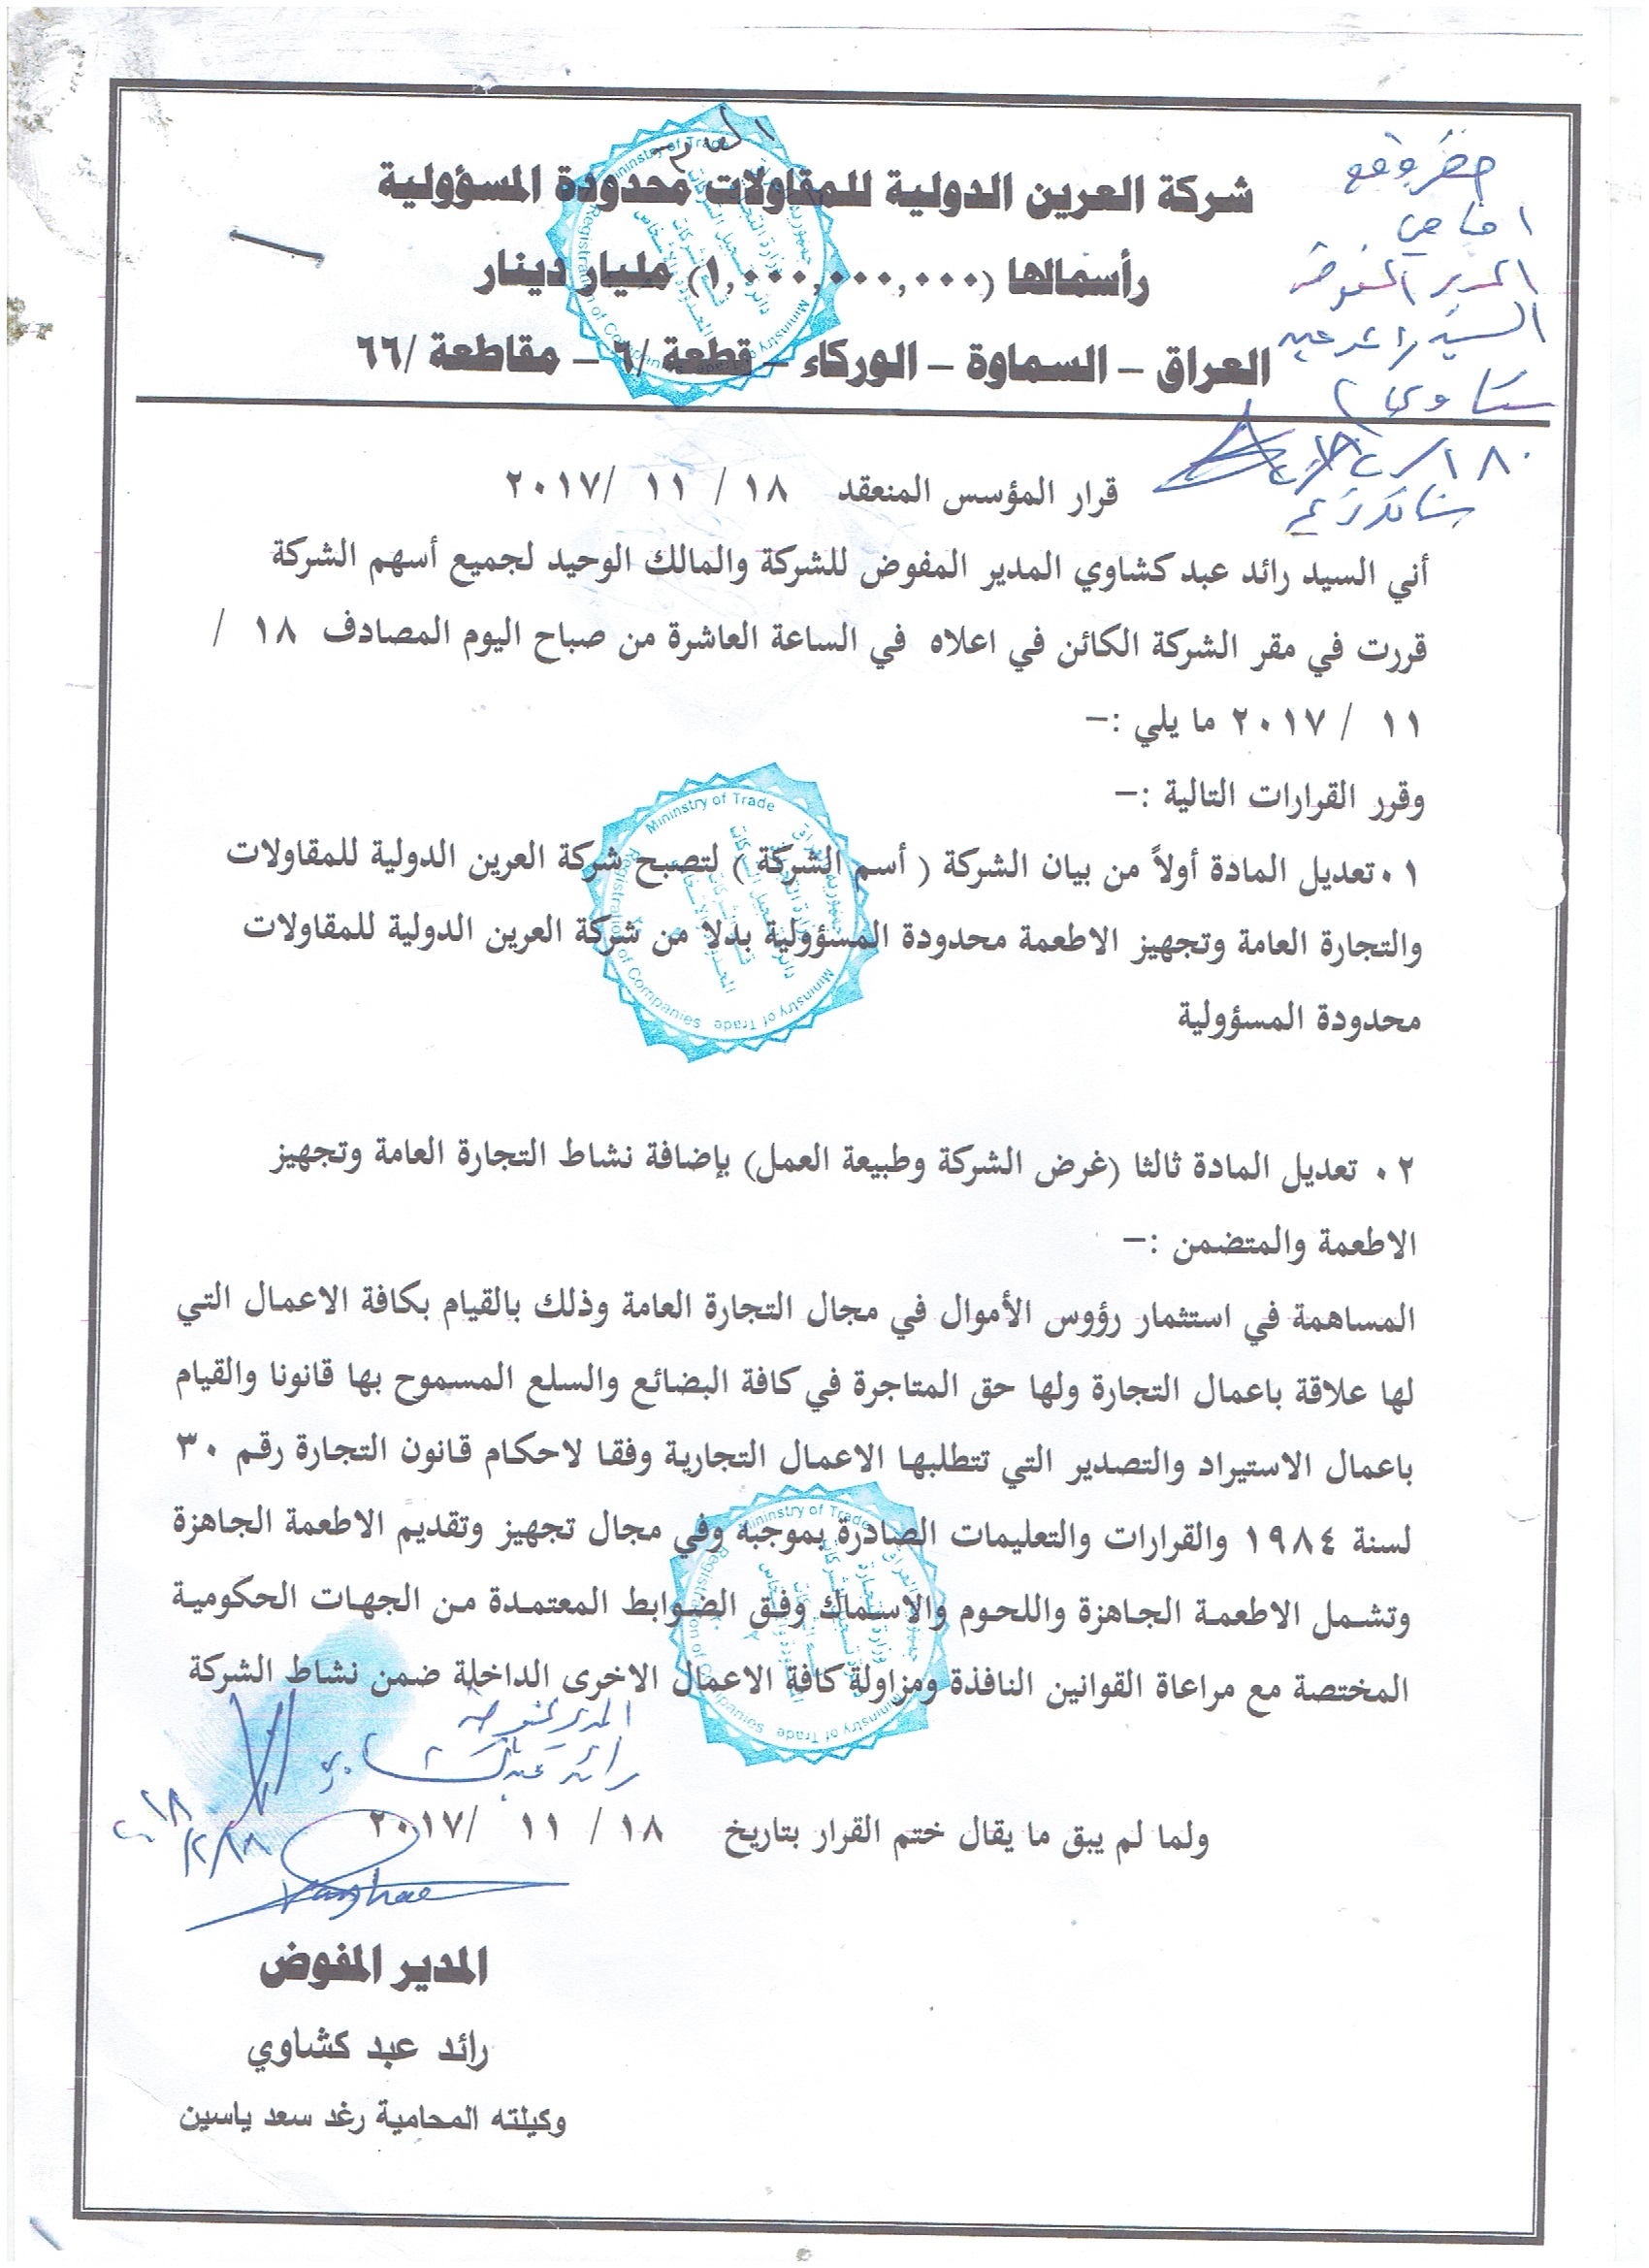 شركة العرين الدولية للمقاولات محدودة المسؤولية
رأسمالها (١,٠٠٠,٠٠٠,٠٠٠) مليار دينار
العراق – السماوة – الوركاء – قطعة /٦ – مقاطعة /٦٦
حضر ووقع
امامي
المدير المفوض
السيد رائد عبد
كشاوي
قرار المؤسس المنعقد ١٨ / ١١ /٢٠١٧
أني السيد رائد عبد كشاوي المدير المفوض للشركة والمالك الوحيد لجميع أسهم الشركة
قررت في مقر الشركة الكائن في اعلاه في الساعة العاشرة من صباح اليوم المصادف ١٨ /
١١ / ٢٠١٧ ما يلي :–
وقرر القرارات التالية :–
٠١ تعديل المادة أولاً من بيان الشركة ( أسم الشركة ) لتصبح شركة العرين الدولية للمقاولات
والتجارة العامة وتجهيز الاطعمة محدودة المسؤولية بدلا من شركة العرين الدولية للمقاولات
محدودة المسؤولية
٠٢ تعديل المادة ثالثا (غرض الشركة وطبيعة العمل) بإضافة نشاط التجارة العامة وتجهيز
الاطعمة والمتضمن :–
المساهمة في استثمار رؤوس الأموال في مجال التجارة العامة وذلك بالقيام بكافة الاعمال التي
لها علاقة باعمال التجارة ولها حق المتاجرة في كافة البضائع والسلع المسموح بها قانونا والقيام
باعمال الاستيراد والتصدير التي تتطلبها الاعمال التجارية وفقا لاحكام قانون التجارة رقم ٣٠
لسنة ١٩٨٤ والقرارات والتعليمات الصادرة بموجبه وفي مجال تجهيز وتقديم الاطعمة الجاهزة
وتشمل الاطعمة الجاهزة واللحوم والاسماك وفق الضوابط المعتمدة من الجهات الحكومية
المختصة مع مراعاة القوانين النافذة ومزاولة كافة الاعمال الاخرى الداخلة ضمن نشاط الشركة
المدير المفوض
رائد عبد كشاوي
ولما لم يبق ما يقال ختم القرار بتاريخ ١٨ / ١١ /٢٠١٧
المدير المفوض
رائد عبد كشاوي
وكيلته المحامية رغد سعد ياسين
Ministry of Trade
Registration of Companies